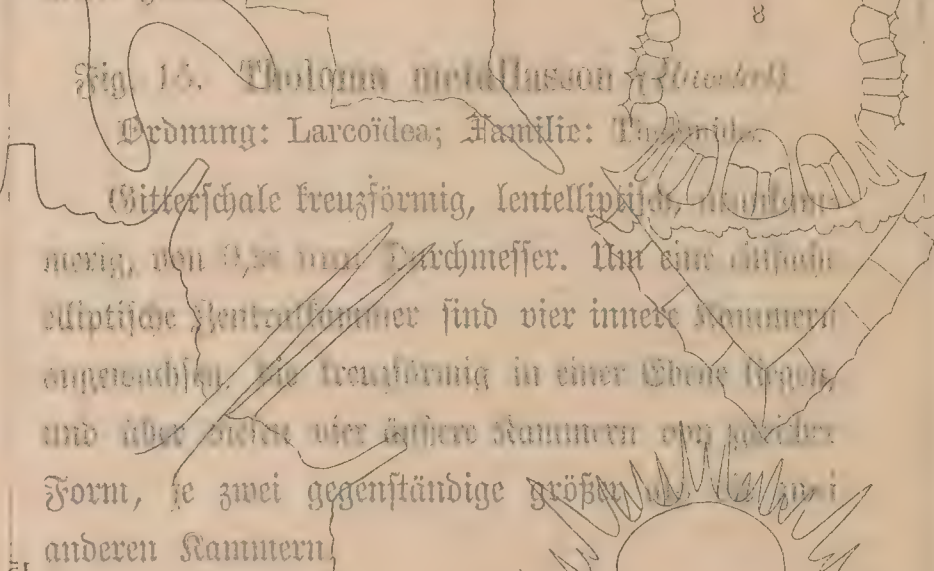 8
Fig. 15. Tholoma metallasson (Haeckel).
Ordnung: Larcoïdea; Familie:
Gitterschale kreuzförmig, lentelliptisch,
merig, von mm Durchmesser. Um eine einfache
elliptische Zentralkammer sind vier innere Kammern
angewachsen, die kreuzförmig in einer Ebene liegen,
und über diesen vier äußere Kammern von gleicher
Form, je zwei gegenständige größer als die zwei
anderen Kammern.